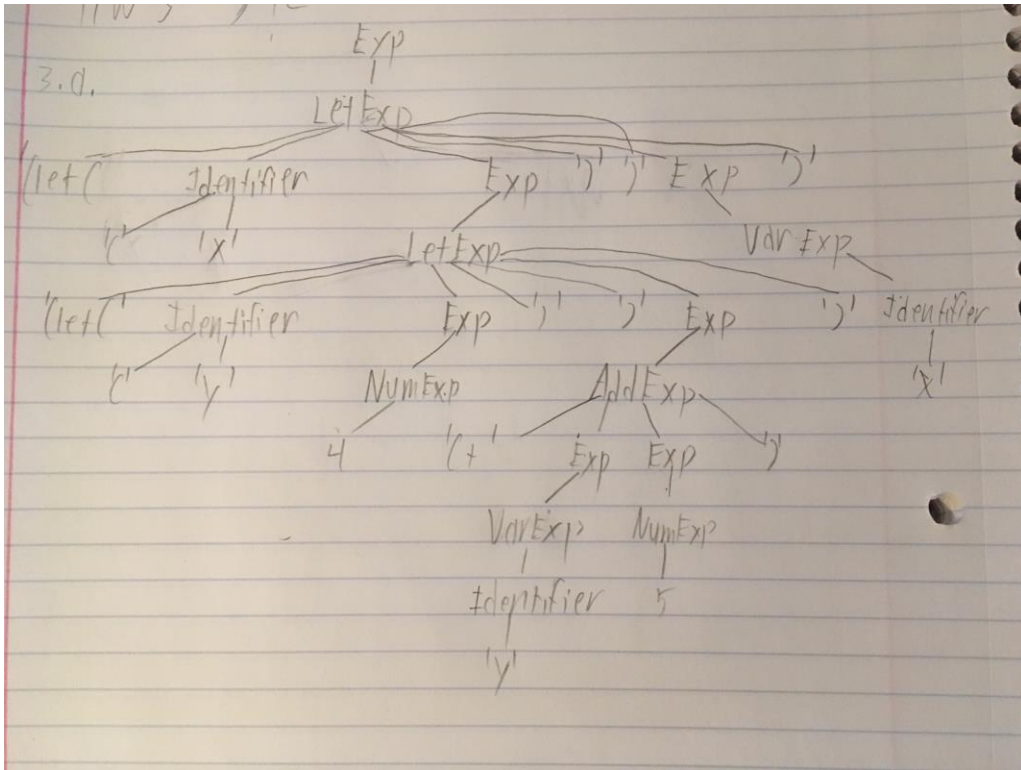 Exp
3.d.
LetExp
'(let(' Identifier Exp ')' ')' Exp ')'
'(' 'x' LetExp VarExp
'(let(' Identifier Exp ')' ')' Exp ')' Identifier
'(' 'y' NumExp AddExp 'x'
4 '(+' Exp Exp ')'
VarExp NumExp
Identifier 5
'y'